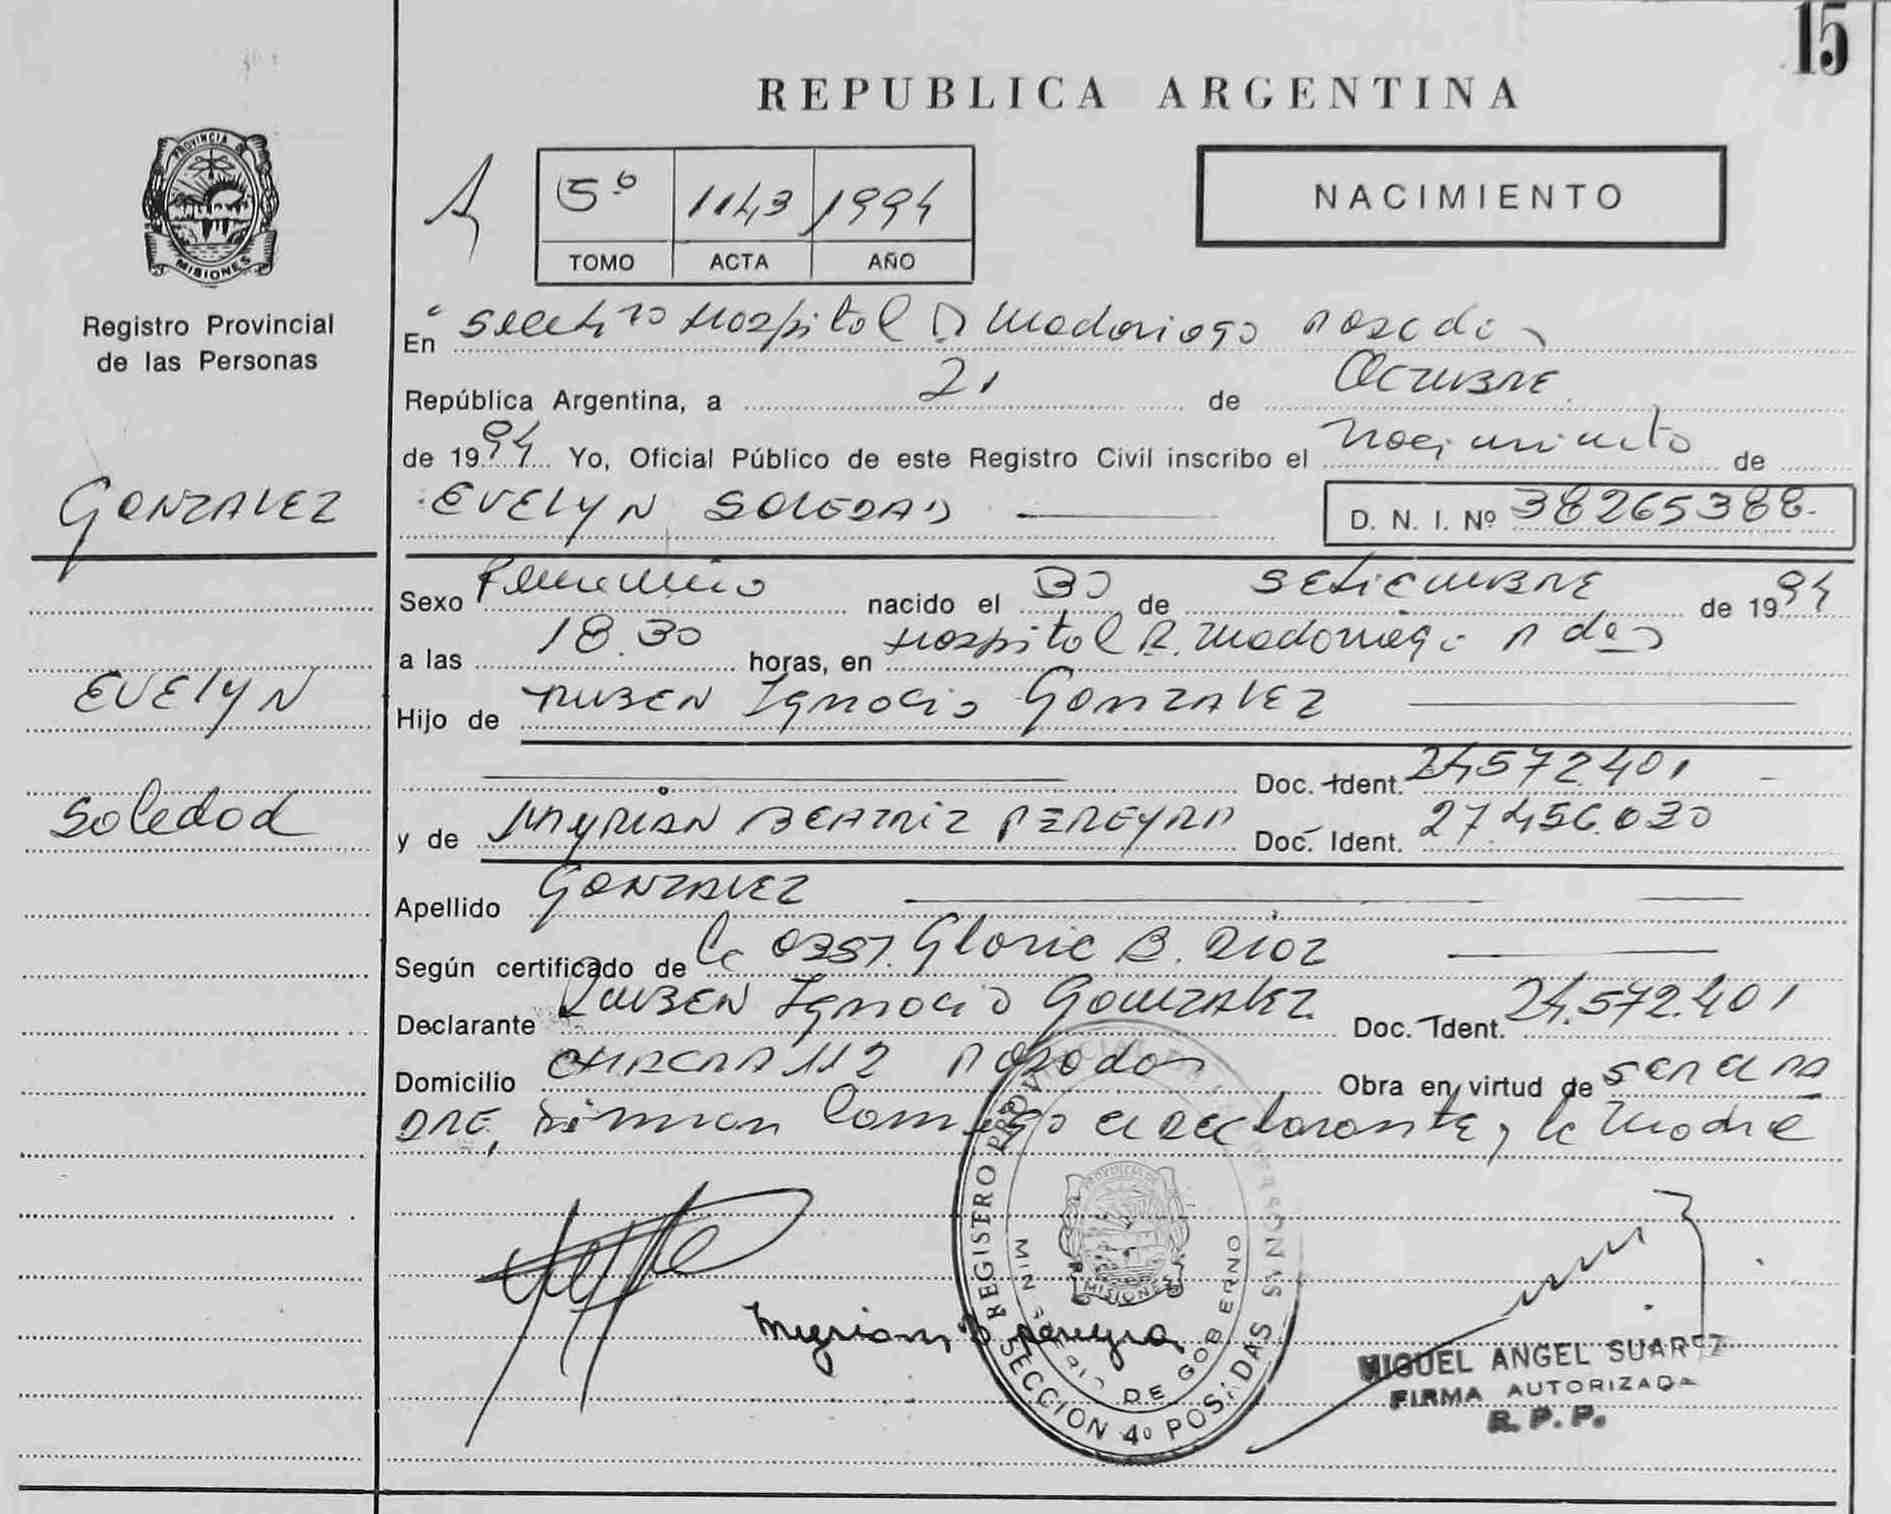 15
REPUBLICA ARGENTINA
PROVINCIA DE
MISIONES
A
5º 1143 1994
TOMO ACTA AÑO
NACIMIENTO
Registro Provincial
de las Personas
En Hospital R Madariaga Posadas
República Argentina, a 21 de Octubre
de 1994 Yo, Oficial Público de este Registro Civil inscribo el nacimiento de
GONZALEZ
EVELYN SOLEDAD D. N. I. Nº 38265388
Sexo Femenino nacido el 30 de Setiembre de 1994
a las 18.30 horas, en Hospital R. Madariaga Pdas
EVELYN
Hijo de RUBEN Ignacio GONZALEZ
Doc. Ident. 24572.401
Soledad
y de MYRIAN BEATRIZ PEREYRA Doc. Ident. 27.456.030
Apellido GONZALEZ
Según certificado de la obst. Gloria B. Diaz
Declarante RUBEN Ignacio GONZALEZ Doc. Ident. 24.572.401
Domicilio CHACRA 112 Posadas Obra en virtud de ser el pa
dre, firman conmigo el declarante y la madre
Myrian B Pereyra
REGISTRO PROVINCIAL DE LAS PERSONAS
MINISTERIO DE GOBIERNO
PROVINCIA DE
MISIONES
SECCION 4º POSADAS
MIGUEL ANGEL SUAREZ
FIRMA AUTORIZADA
R. P. P.